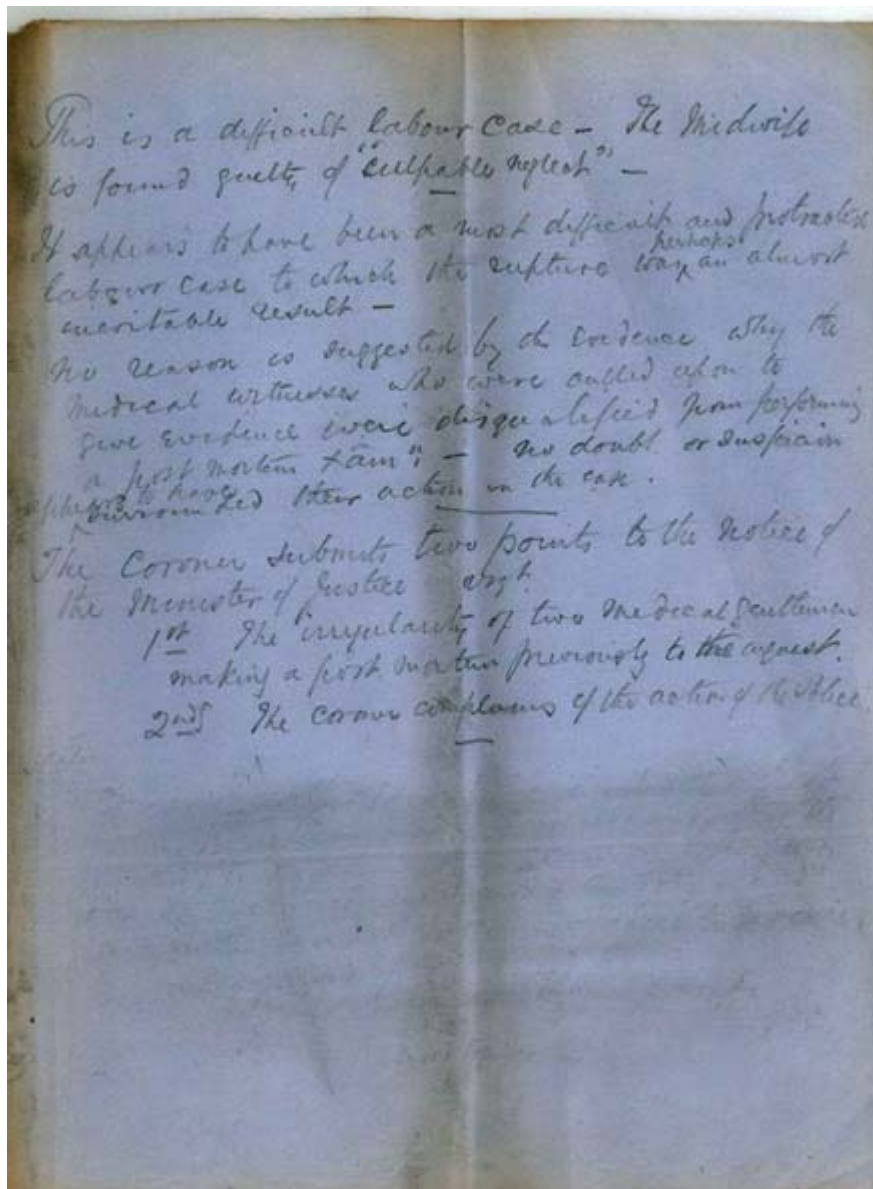 This is a difficult labour case – The Midwife
is found guilty of "culpable neglect" –
It appears to have been a most difficult and protracted
perhaps
labour case to which the rupture was an almost
inevitable result –
No reason is suggested by the evidence why the
medical witnesses who were called upon to
give evidence were disqualified from performing
a post mortem Exam: – no doubt or suspicion
appears to have
surrounded their action in the case.
The Coroner submits two points to the notice of
the Minister of Justice
1st The irregularity of two medical gentlemen
making a post mortem previously to the inquest.
2nd The coroner complains of the action of the Police.